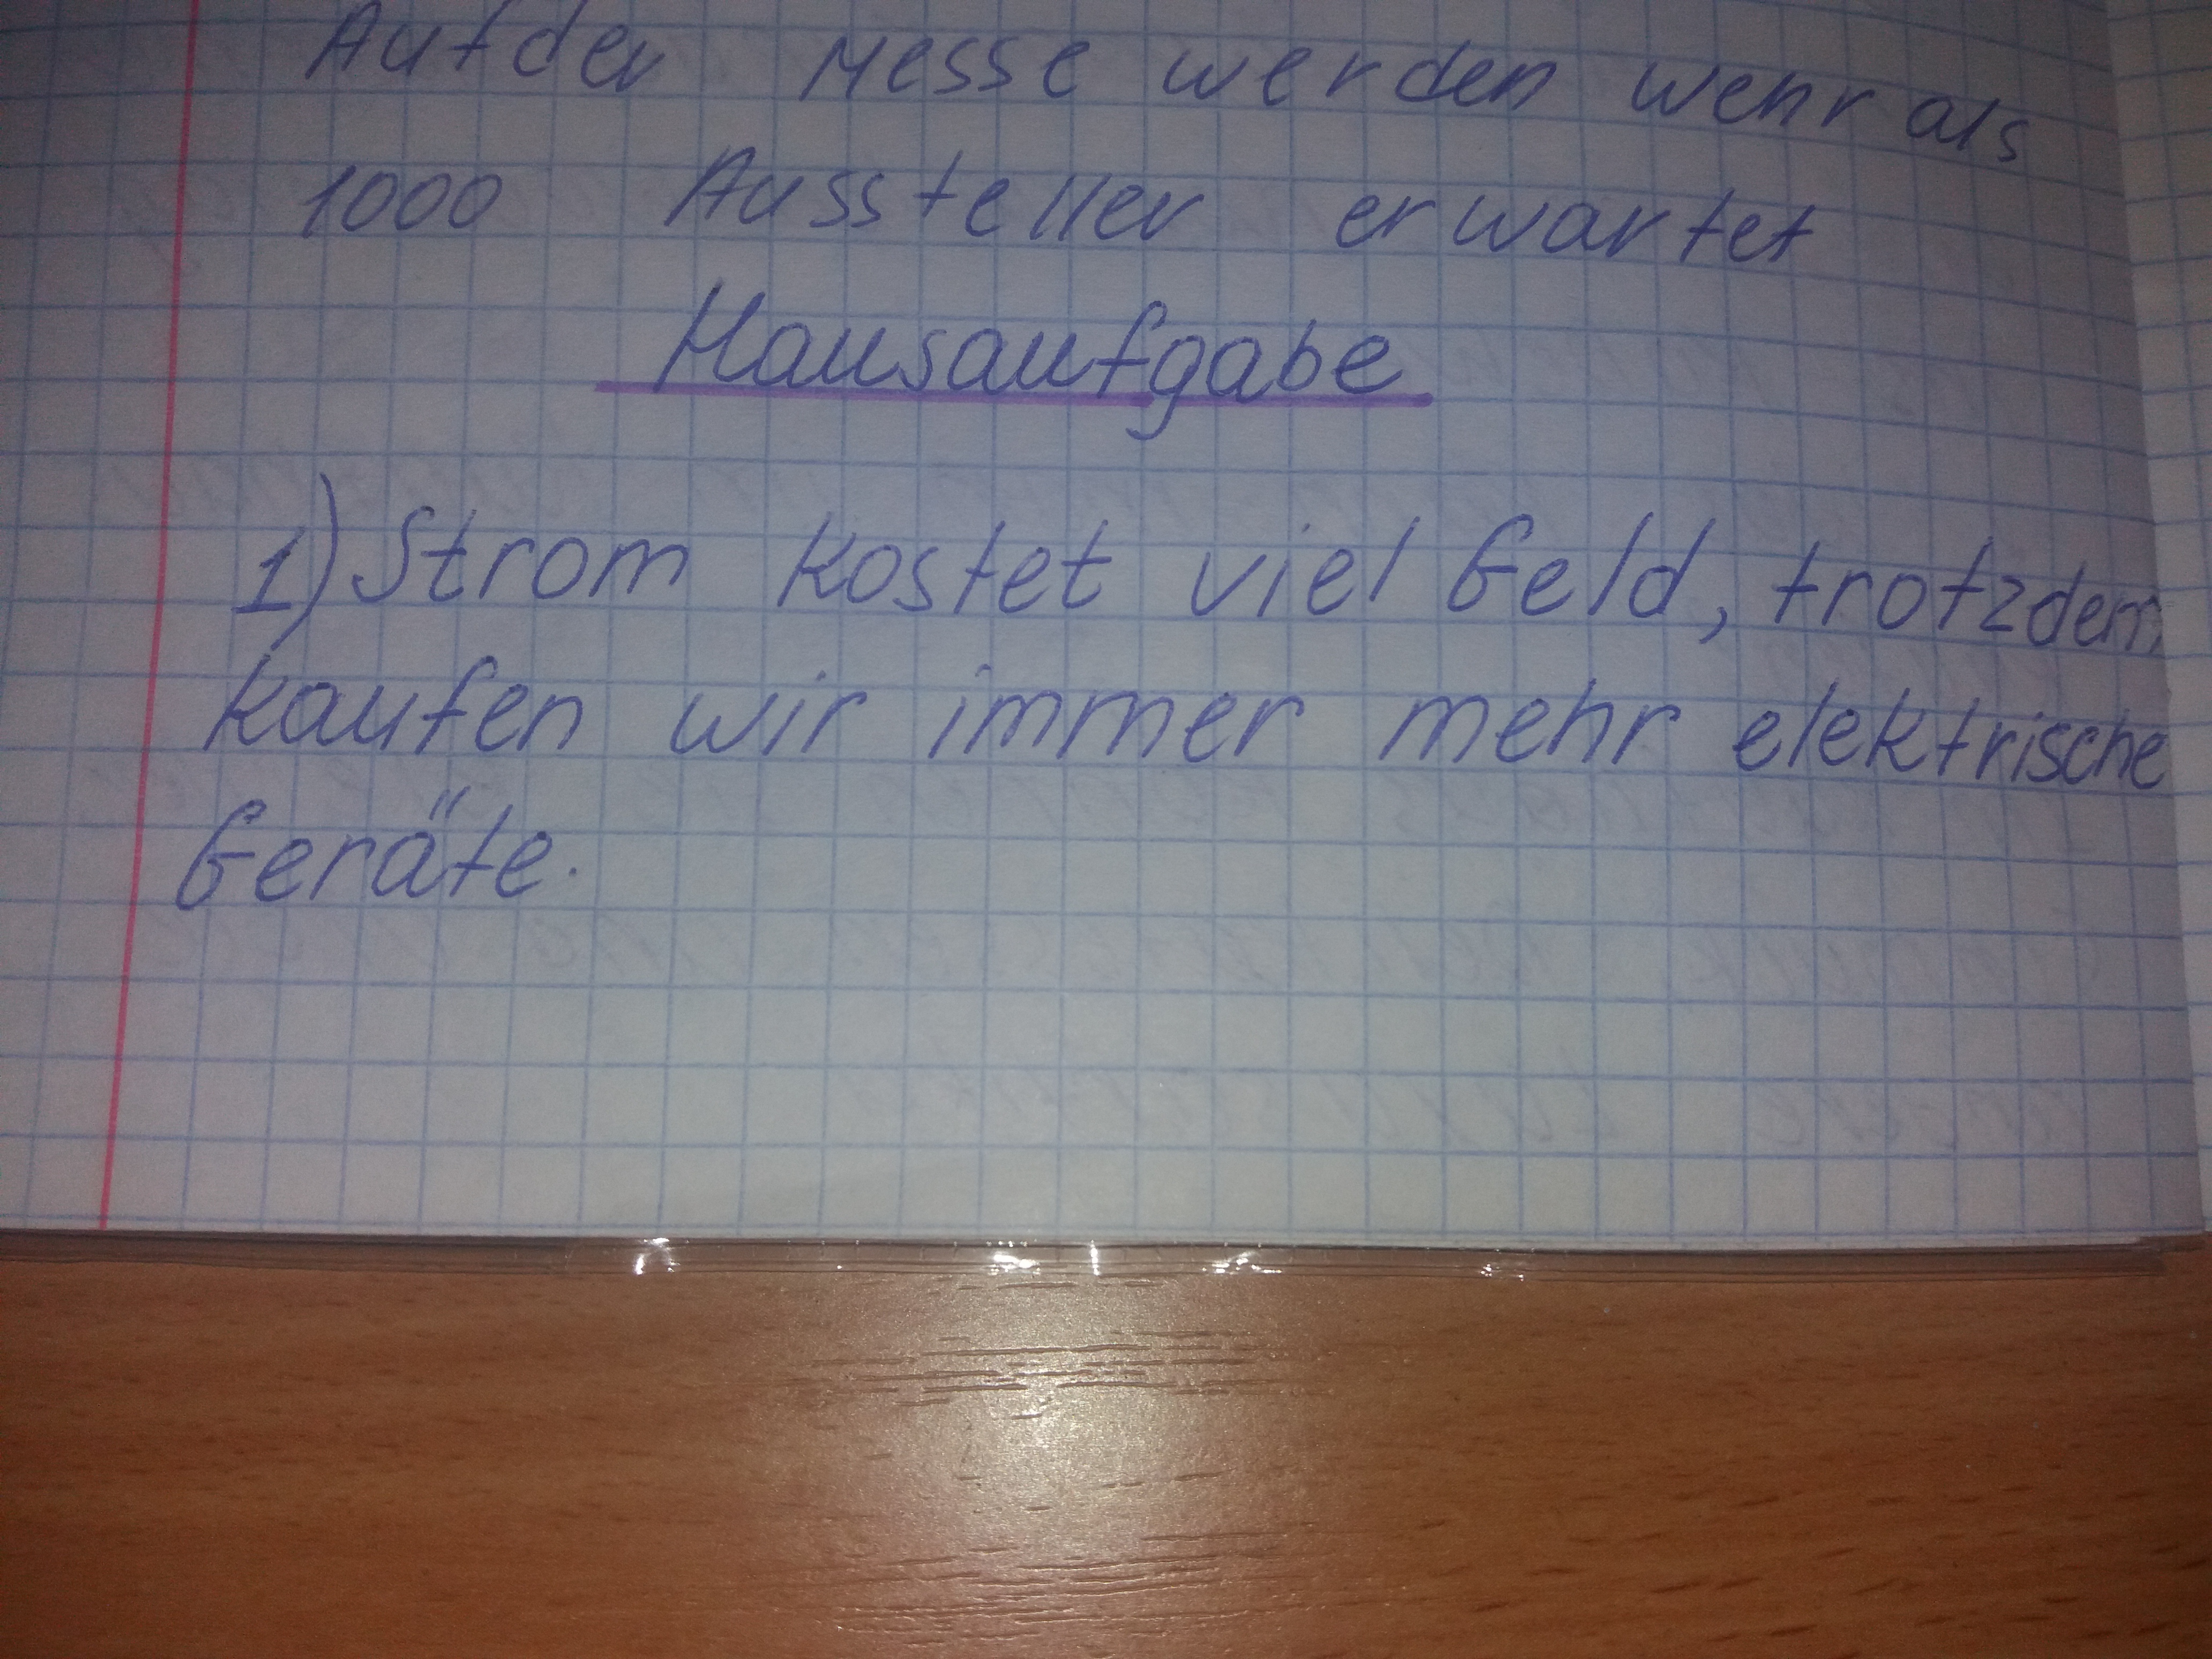 Auf der Messe werden wehr als
1000 Aussteller erwartet
Hausaufgabe
1) Strom kostet viel Geld, trotzdem
kaufen wir immer mehr elektrische
Geräte.